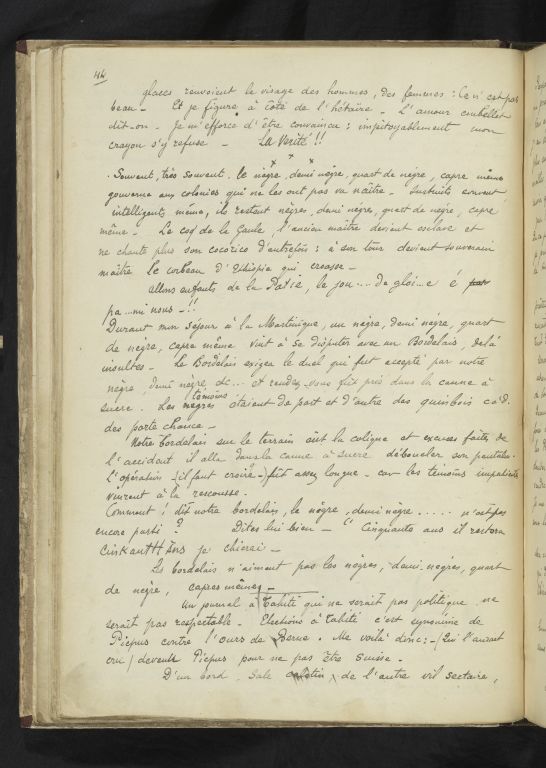 42
glaces renvoient le visage des hommes, des femmes : Ce n'est pas
beau — Et je figure à côté de l'hétaïre — L'amour embellit
dit-on — Je m'efforce d'être convaincu : impitoyablement mon
crayon s'y refuse — La Vérité !!
x x x
Souvent, très souvent, le nègre, demi nègre, quart de nègre, capre même
gouverne aux colonies qui ne les ont pas vu naître. Instruits souvent,
intelligents même, ils restent nègres, demi nègre, quart de nègre, capre
même — Le coq de la Gaule, l'ancien maître devient esclave et
ne chante plus son cocorico d'autrefois : à son tour devient souverain
maître le corbeau d'Ethiopie qui croasse —
allons enfants de la Patie, le jou.... de gloi...e é
pa...mi nous — !!
Durant mon séjour à la Martinique, un nègre, demi nègre, quart
de nègre, capre même vint à se disputer avec un Bordelais, de là
insultes — Le Bordelais exigea le duel qui fut accepté par notre
nègre, demi nègre &c... et rendez-vous fut pris dans la canne à
témoins
sucre. Les nègres étaient de part et d'autre des quimbois c.à.d.
des porte chance —
Notre Bordelais sur le terrain eût la colique et excuses faites de
l'accident il alla dans la canne à sucre déboucler son pantalon.
L'opération (il faut croire —) fût assez longue — car les témoins impatients
vinrent à la rescousse.
Comment ! dit notre bordelais, le nègre, demi nègre ..... n'est pas
encore parti ? Dites lui bien — " Cinquante ans il restera
CinkantH Ans je chierai —
Les bordelais n'aiment pas les nègres, demi-nègres, quart
de nègre, capres mêmes —
Un journal à Tahiti qui ne serait pas politique, ne
serait pas respectable. Elections à Tahiti c'est synonime de
Picpus contre l'ours de Berne. Me voilà donc : — (Qui l'aurait
cru) devenu Picpus pour ne pas être Suisse —
D'un bord, Sale calotin, de l'autre vil sectaire,